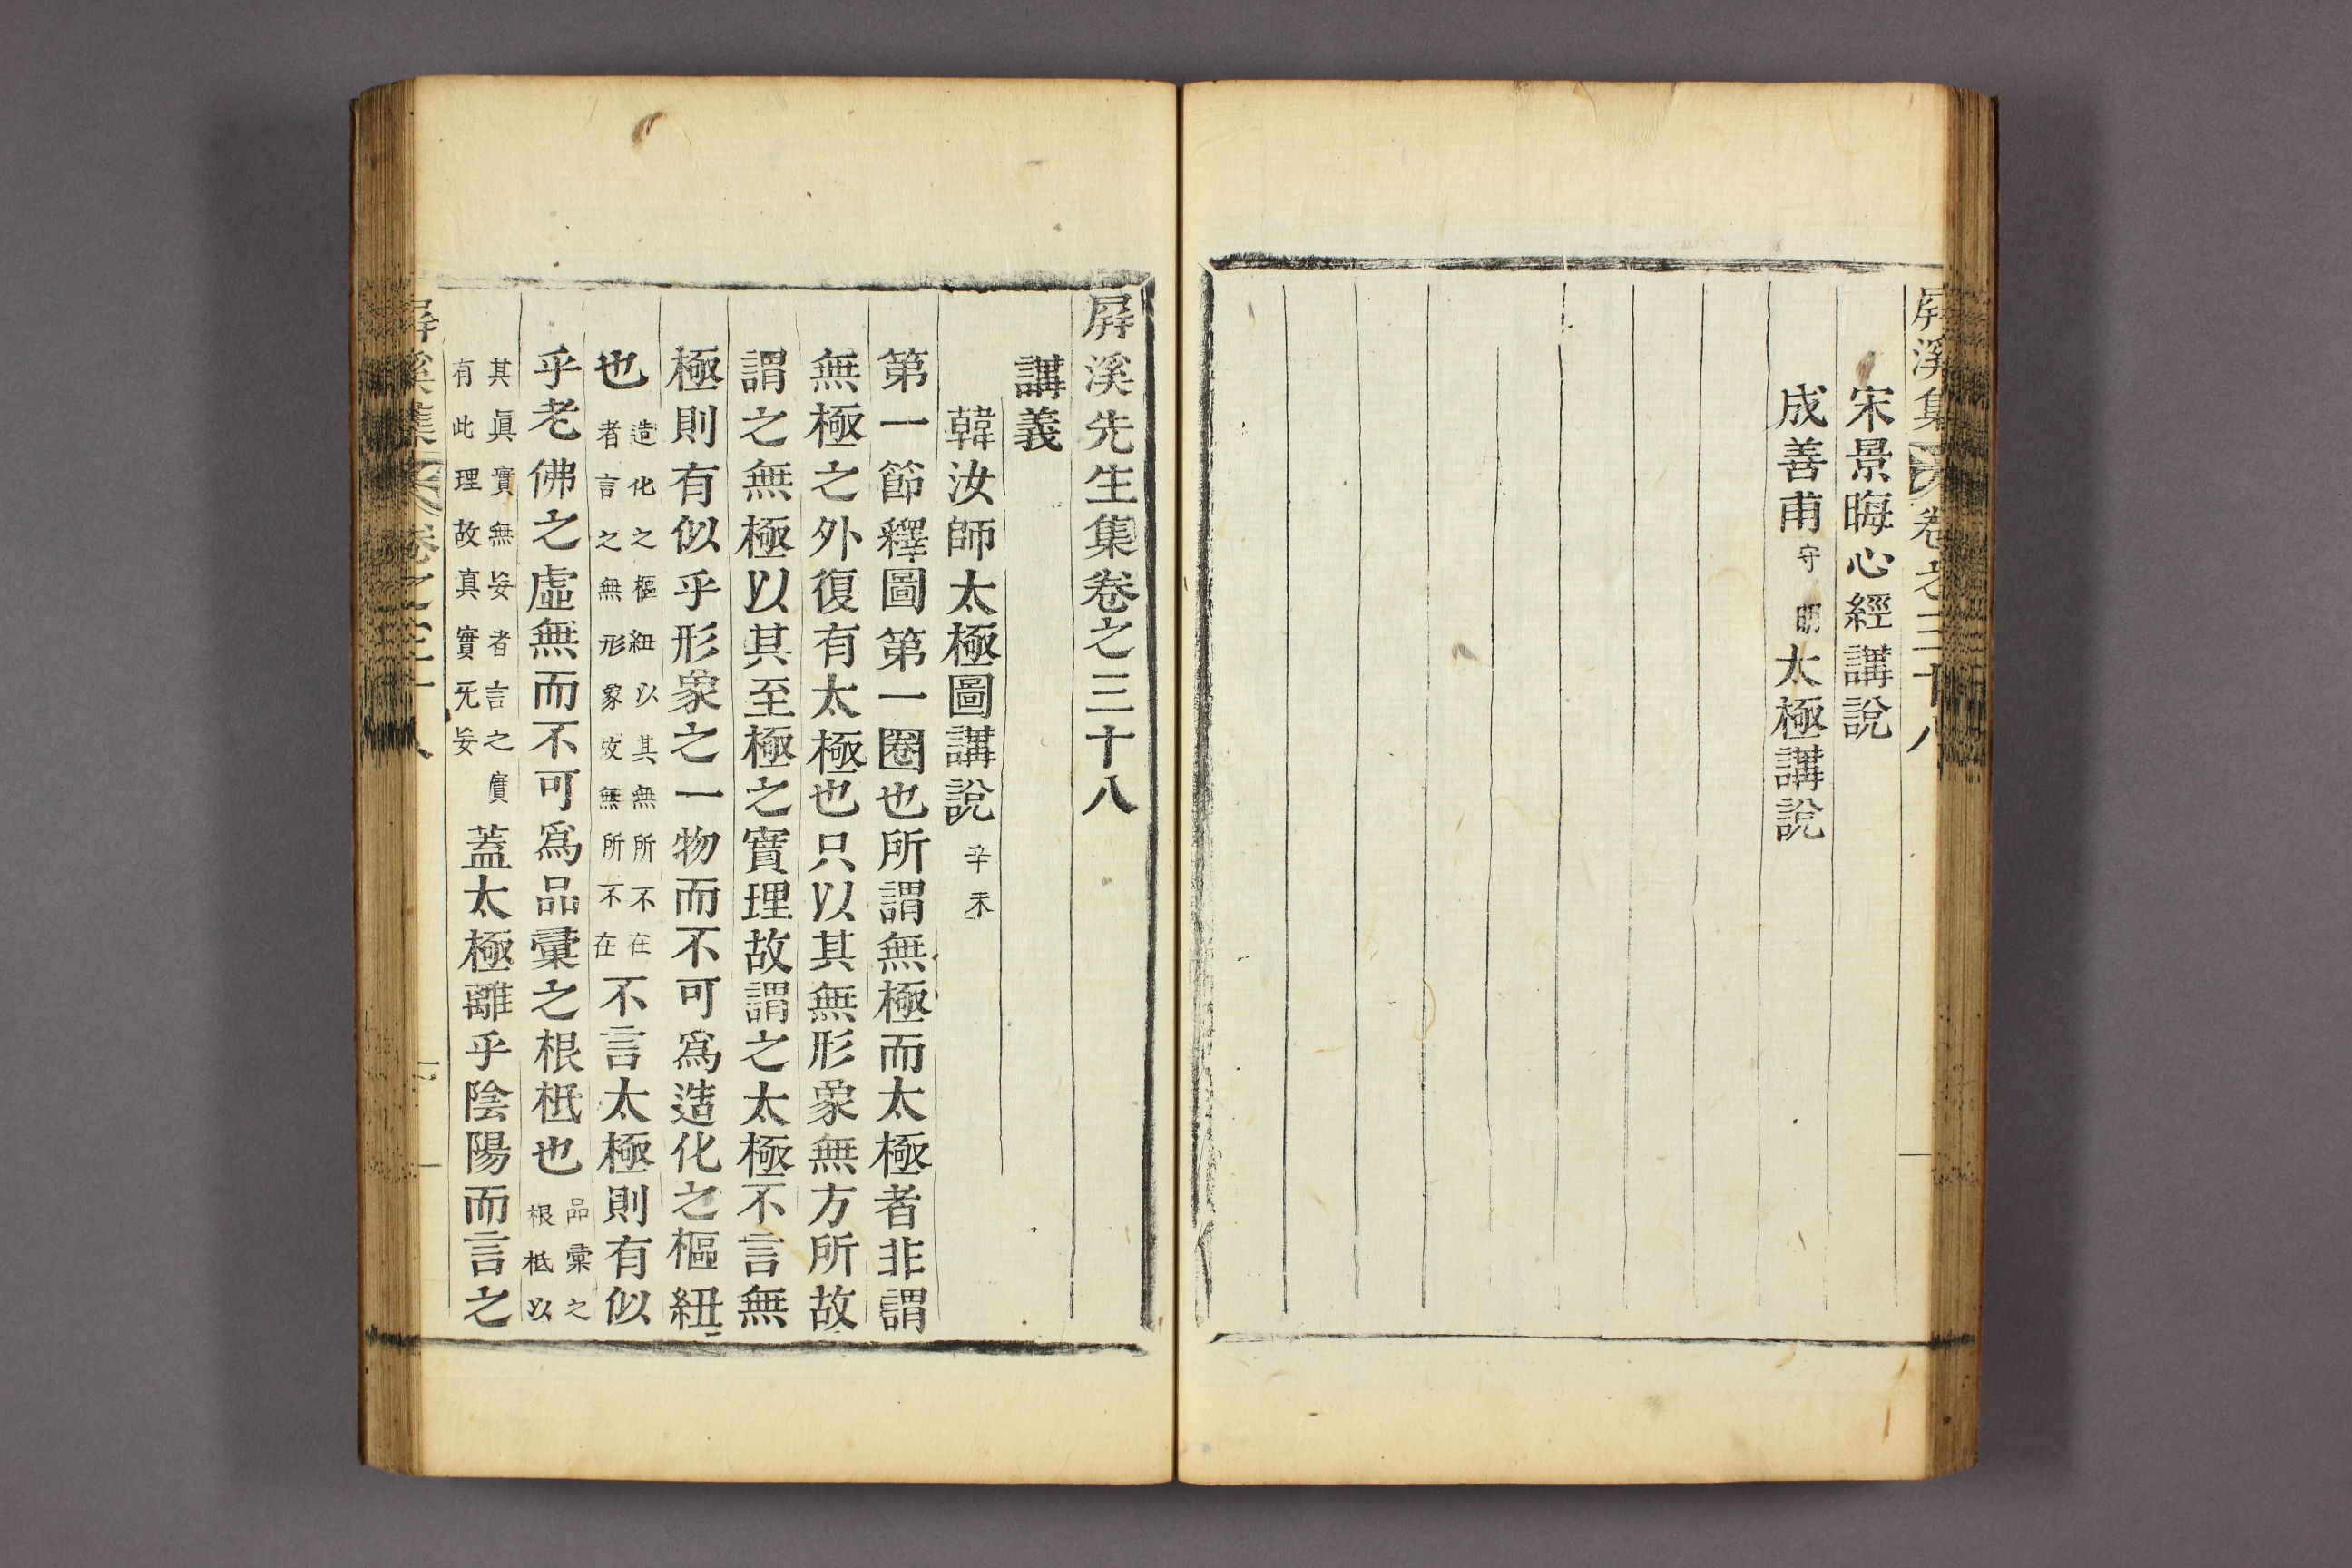 屛溪集 卷之三十八
宋景晦心經講說
成善甫守明太極講說
屛溪先生集卷之三十八
講義
韓汝師太極圖講說辛未
第一節釋圖第一圈也所謂無極而太極者非謂
無極之外復有太極也只以其無形象無方所故
謂之無極以其至極之實理故謂之太極不言無
極則有似乎形象之一物而不可爲造化之樞紐
也造化之樞紐以其無所不在者言之無形象故無所不在不言太極則有似
乎老佛之虛無而不可爲品彙之根柢也品彙之根柢以
其眞實無妄者言之實有此理故真實无妄蓋太極離乎陰陽而言之
屛溪集 卷之三十八 一